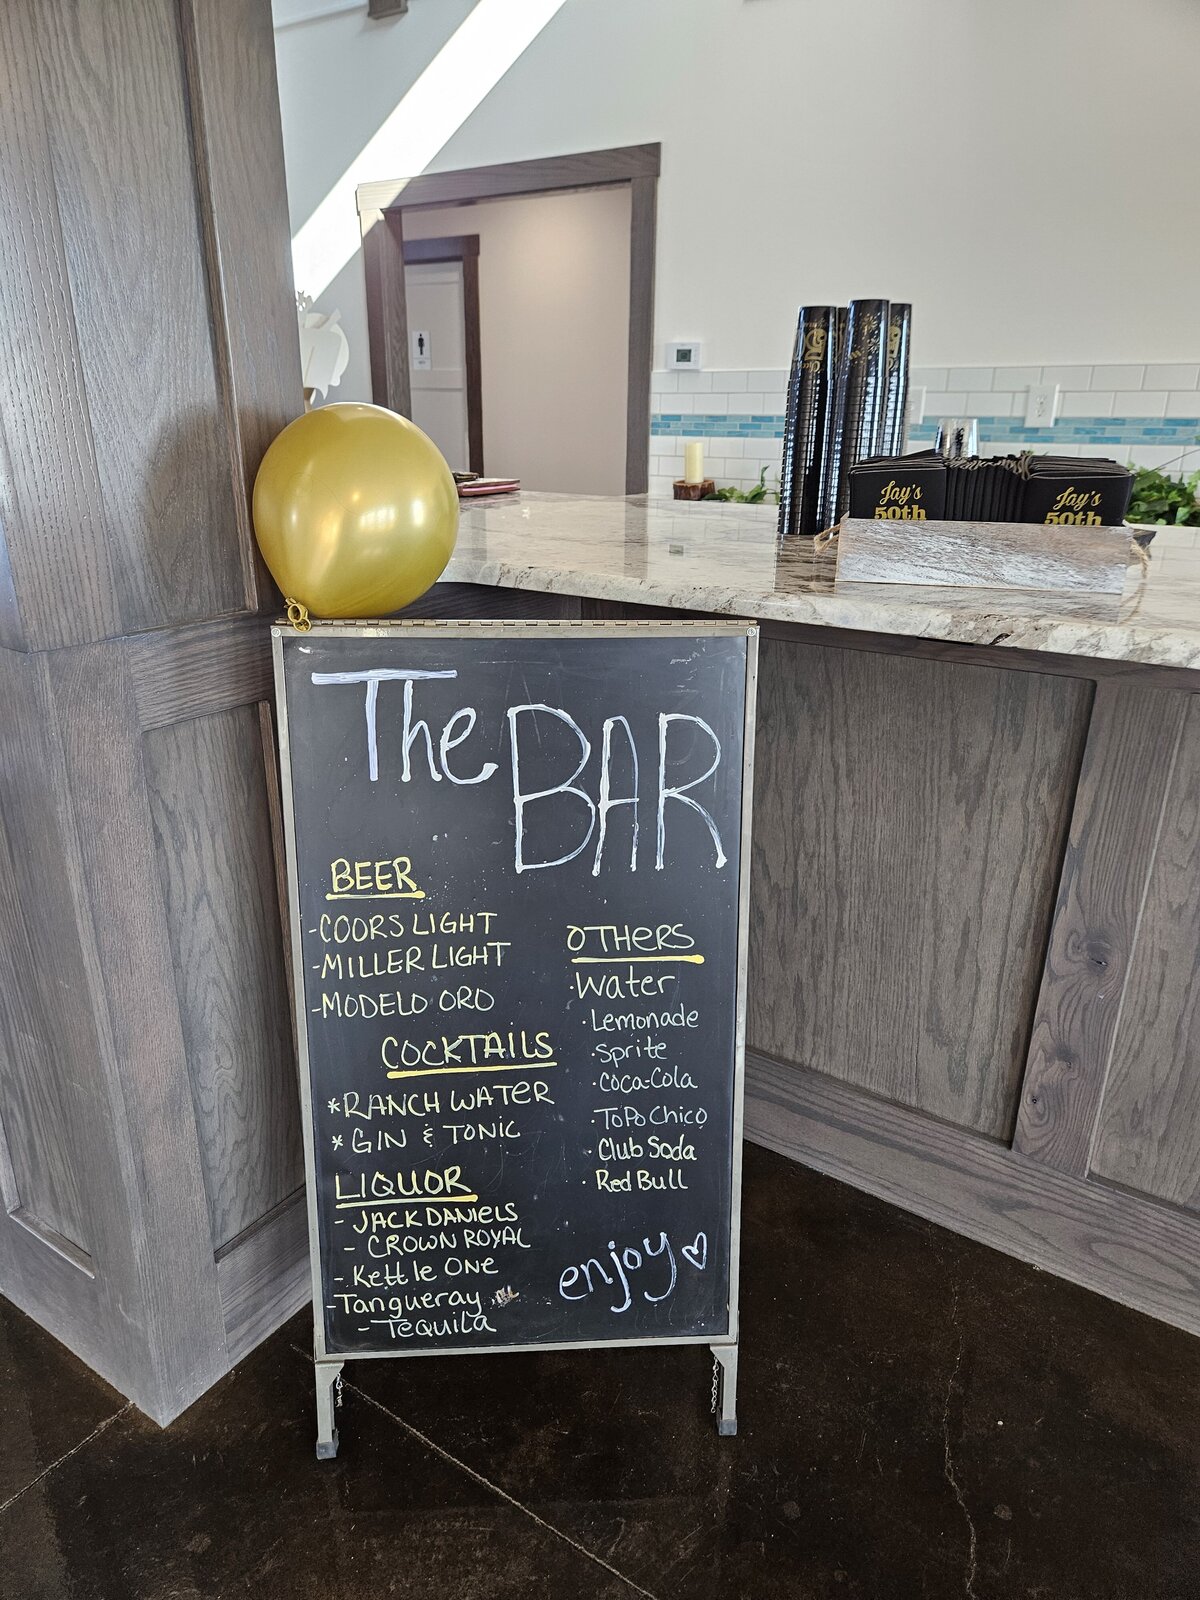 Jay's
50th
Jay's
50th
The
BAR
BEER
-COORS LIGHT
-MILLER LIGHT
-MODELO ORO
COCKTAILS
*RANCH WATER
*GIN & TONIC
LIQUOR
- JACK DANIELS
- CROWN ROYAL
- Kettle ONE
-Tangueray
- Tequila
OTHERS
·Water
·Lemonade
·Sprite
·Coca-Cola
·ToPo Chico
·Club Soda
·Red Bull
enjoy ♡